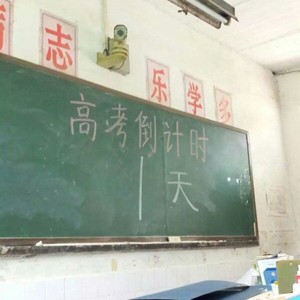 志
乐学多
高考倒计时
1天